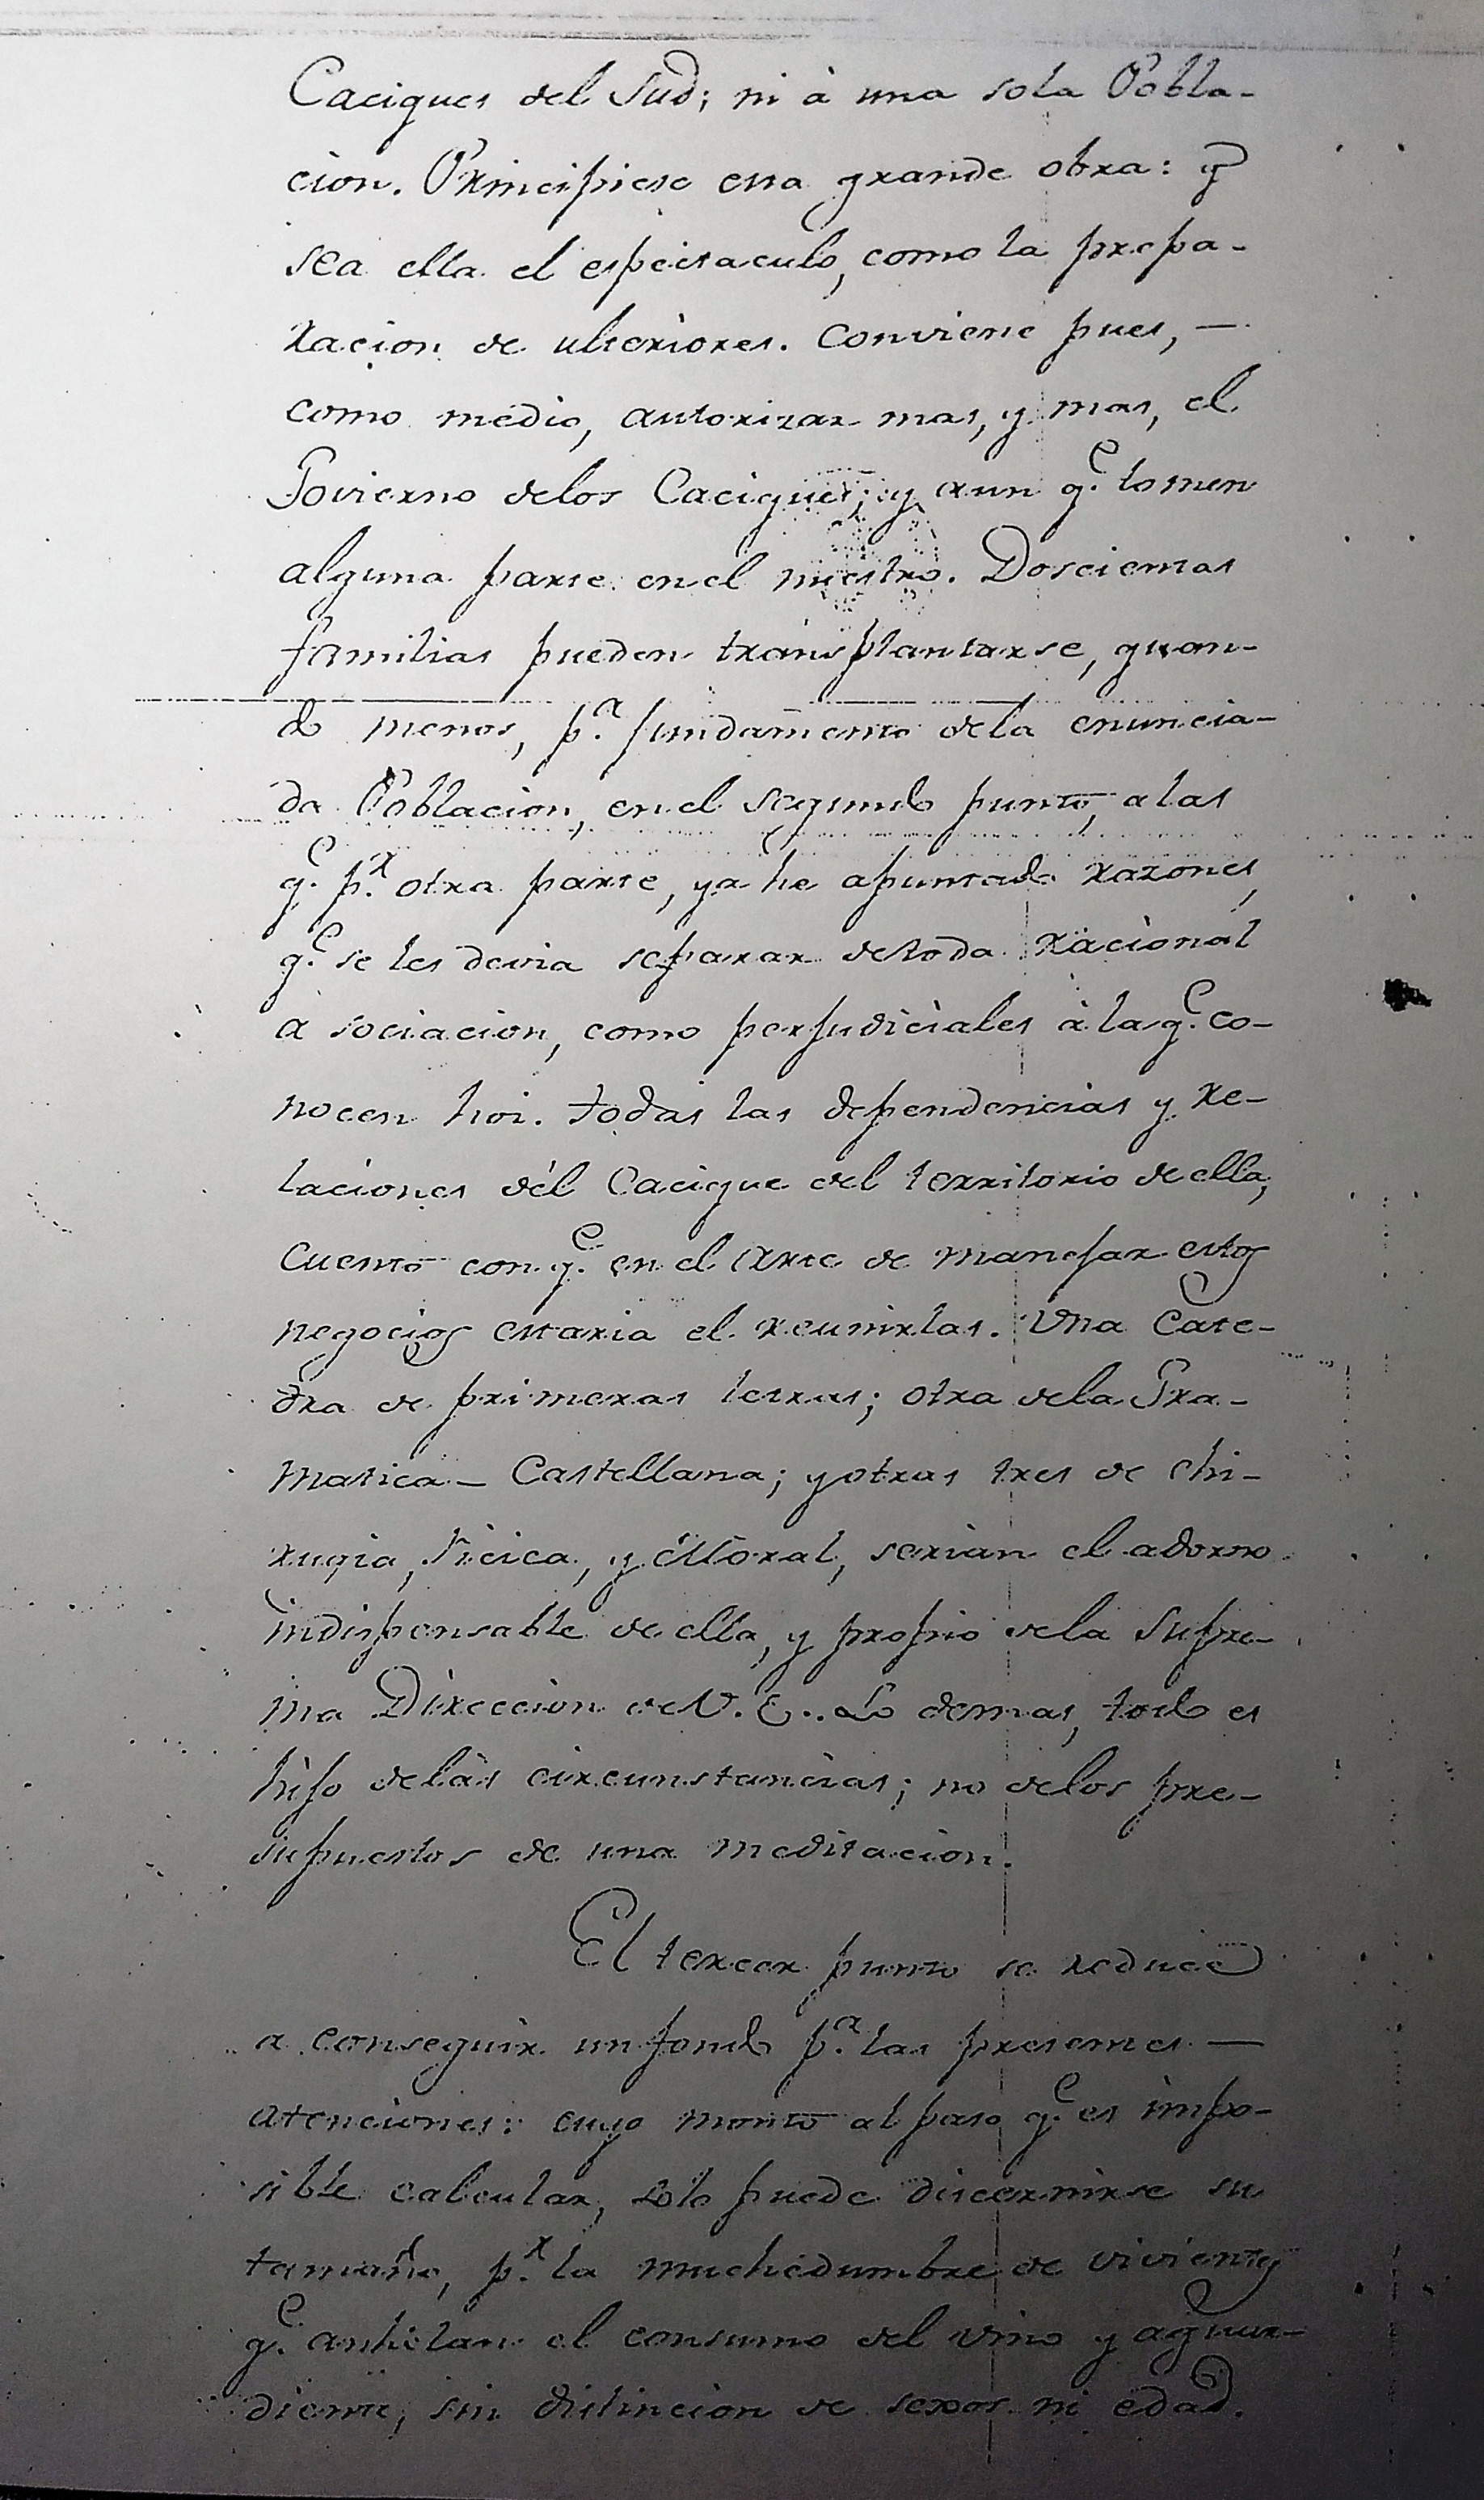 Caciques del Sud; ni à una sola Pobla-
cion. Principiese esa grande obra: y
sea ella el espectaculo, como la prepa-
racion de ulteriores. Conviene pues, —
como medio, autorizar mas, y mas, el
Govierno delos Caciques; y aun q.e tomen
alguna parte en el nuestro. Doscientas
familias pueden transplantarse, quan-
do menos, p.a fundamento dela enuncia-
da Poblacion, en el segundo punto, a las
q.e p.r otra parte, ya he apuntado razones,
q.e se les devia separar detoda racional
asociacion, como perjudiciales à la q.e co-
nocen hoi. todas las dependencias y re-
laciones del Cacique del territorio de ella,
cuento con q.e en el arte de manejar estos
negocios estaria el reunirlas. Una Cate-
dra de primeras letras; otra dela Gra-
matica - Castellana; y otras tres de chi-
rugia, Ficica, y Moral, serian el adorno
indispensable de ella, y propio dela Supre-
ma Direccion de V. E.. Lo demas, todo es
hijo delas circunstancias; no delos pre-
supuestos de una meditacion.
El tercer punto se reduce
a conseguir un fondo p.a las presentes —
atenciones: cuyo monto al paso q.e es impo-
sible calcular, solo puede discernirse su
tamaño, p.r la muchedumbre de vivientes
q.e anhelan el consumo del vino y aguar-
diente, sin distincion de sexos ni edad.